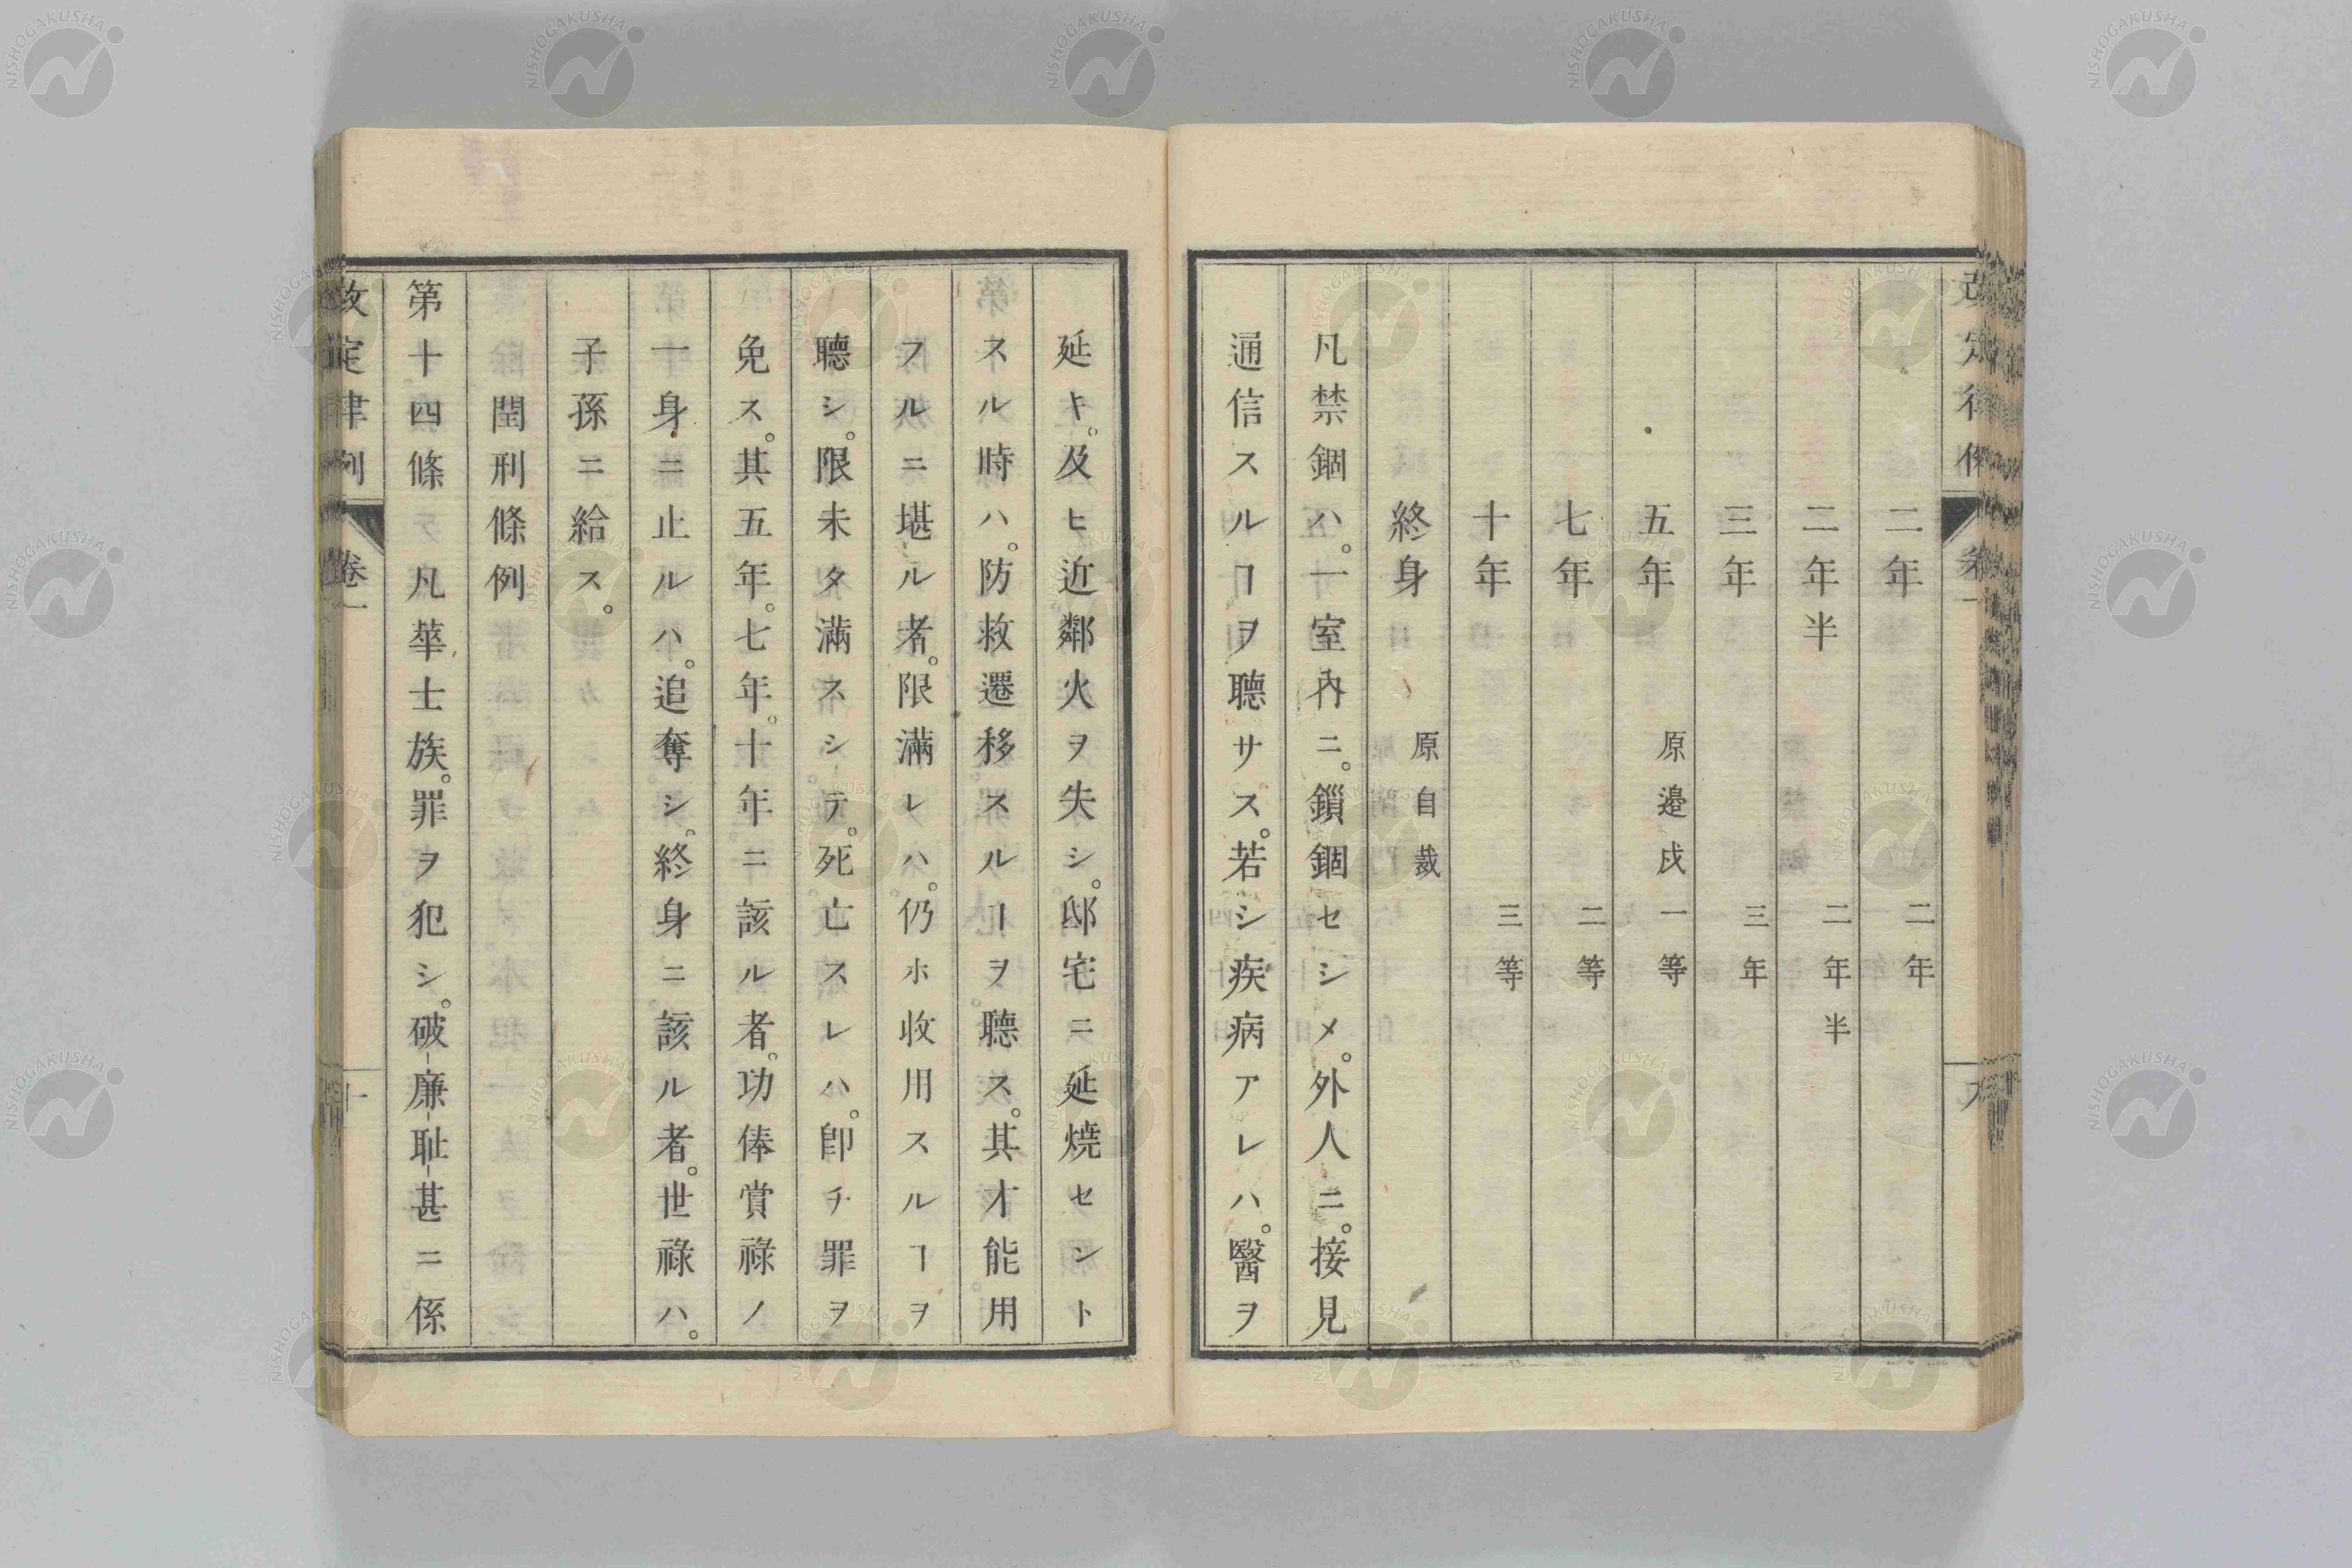 二年 二年
二年半 二年半
三年 三年
五年 原邊戍 一等
七年 二等
十年 三等
終身 原自裁
凡禁錮ハ。一室內ニ。鎖錮セシメ。外人ニ。接見
通信スルヿヲ聽サス。若シ疾病アレハ。醫ヲ
延キ。及ヒ近鄰火ヲ失シ。邸宅ニ延燒セント
スル時ハ。防救遷移スルヿヲ聽ス。其才能用
フルニ堪ル者。限滿レハ。仍ホ收用スルヿヲ
聽シ。限未タ滿スシテ。死亡スレハ。卽チ罪ヲ
免ス。其五年。七年。十年ニ該ル者。功俸賞祿ノ
一身ニ止ルハ。追奪シ。終身ニ該ル者。世祿ハ。
子孫ニ給ス。
閏刑條例
第十四條 凡華士族。罪ヲ犯シ。破廉耻甚ニ係
改定律例 卷一 十
NISHOGAKUSHA